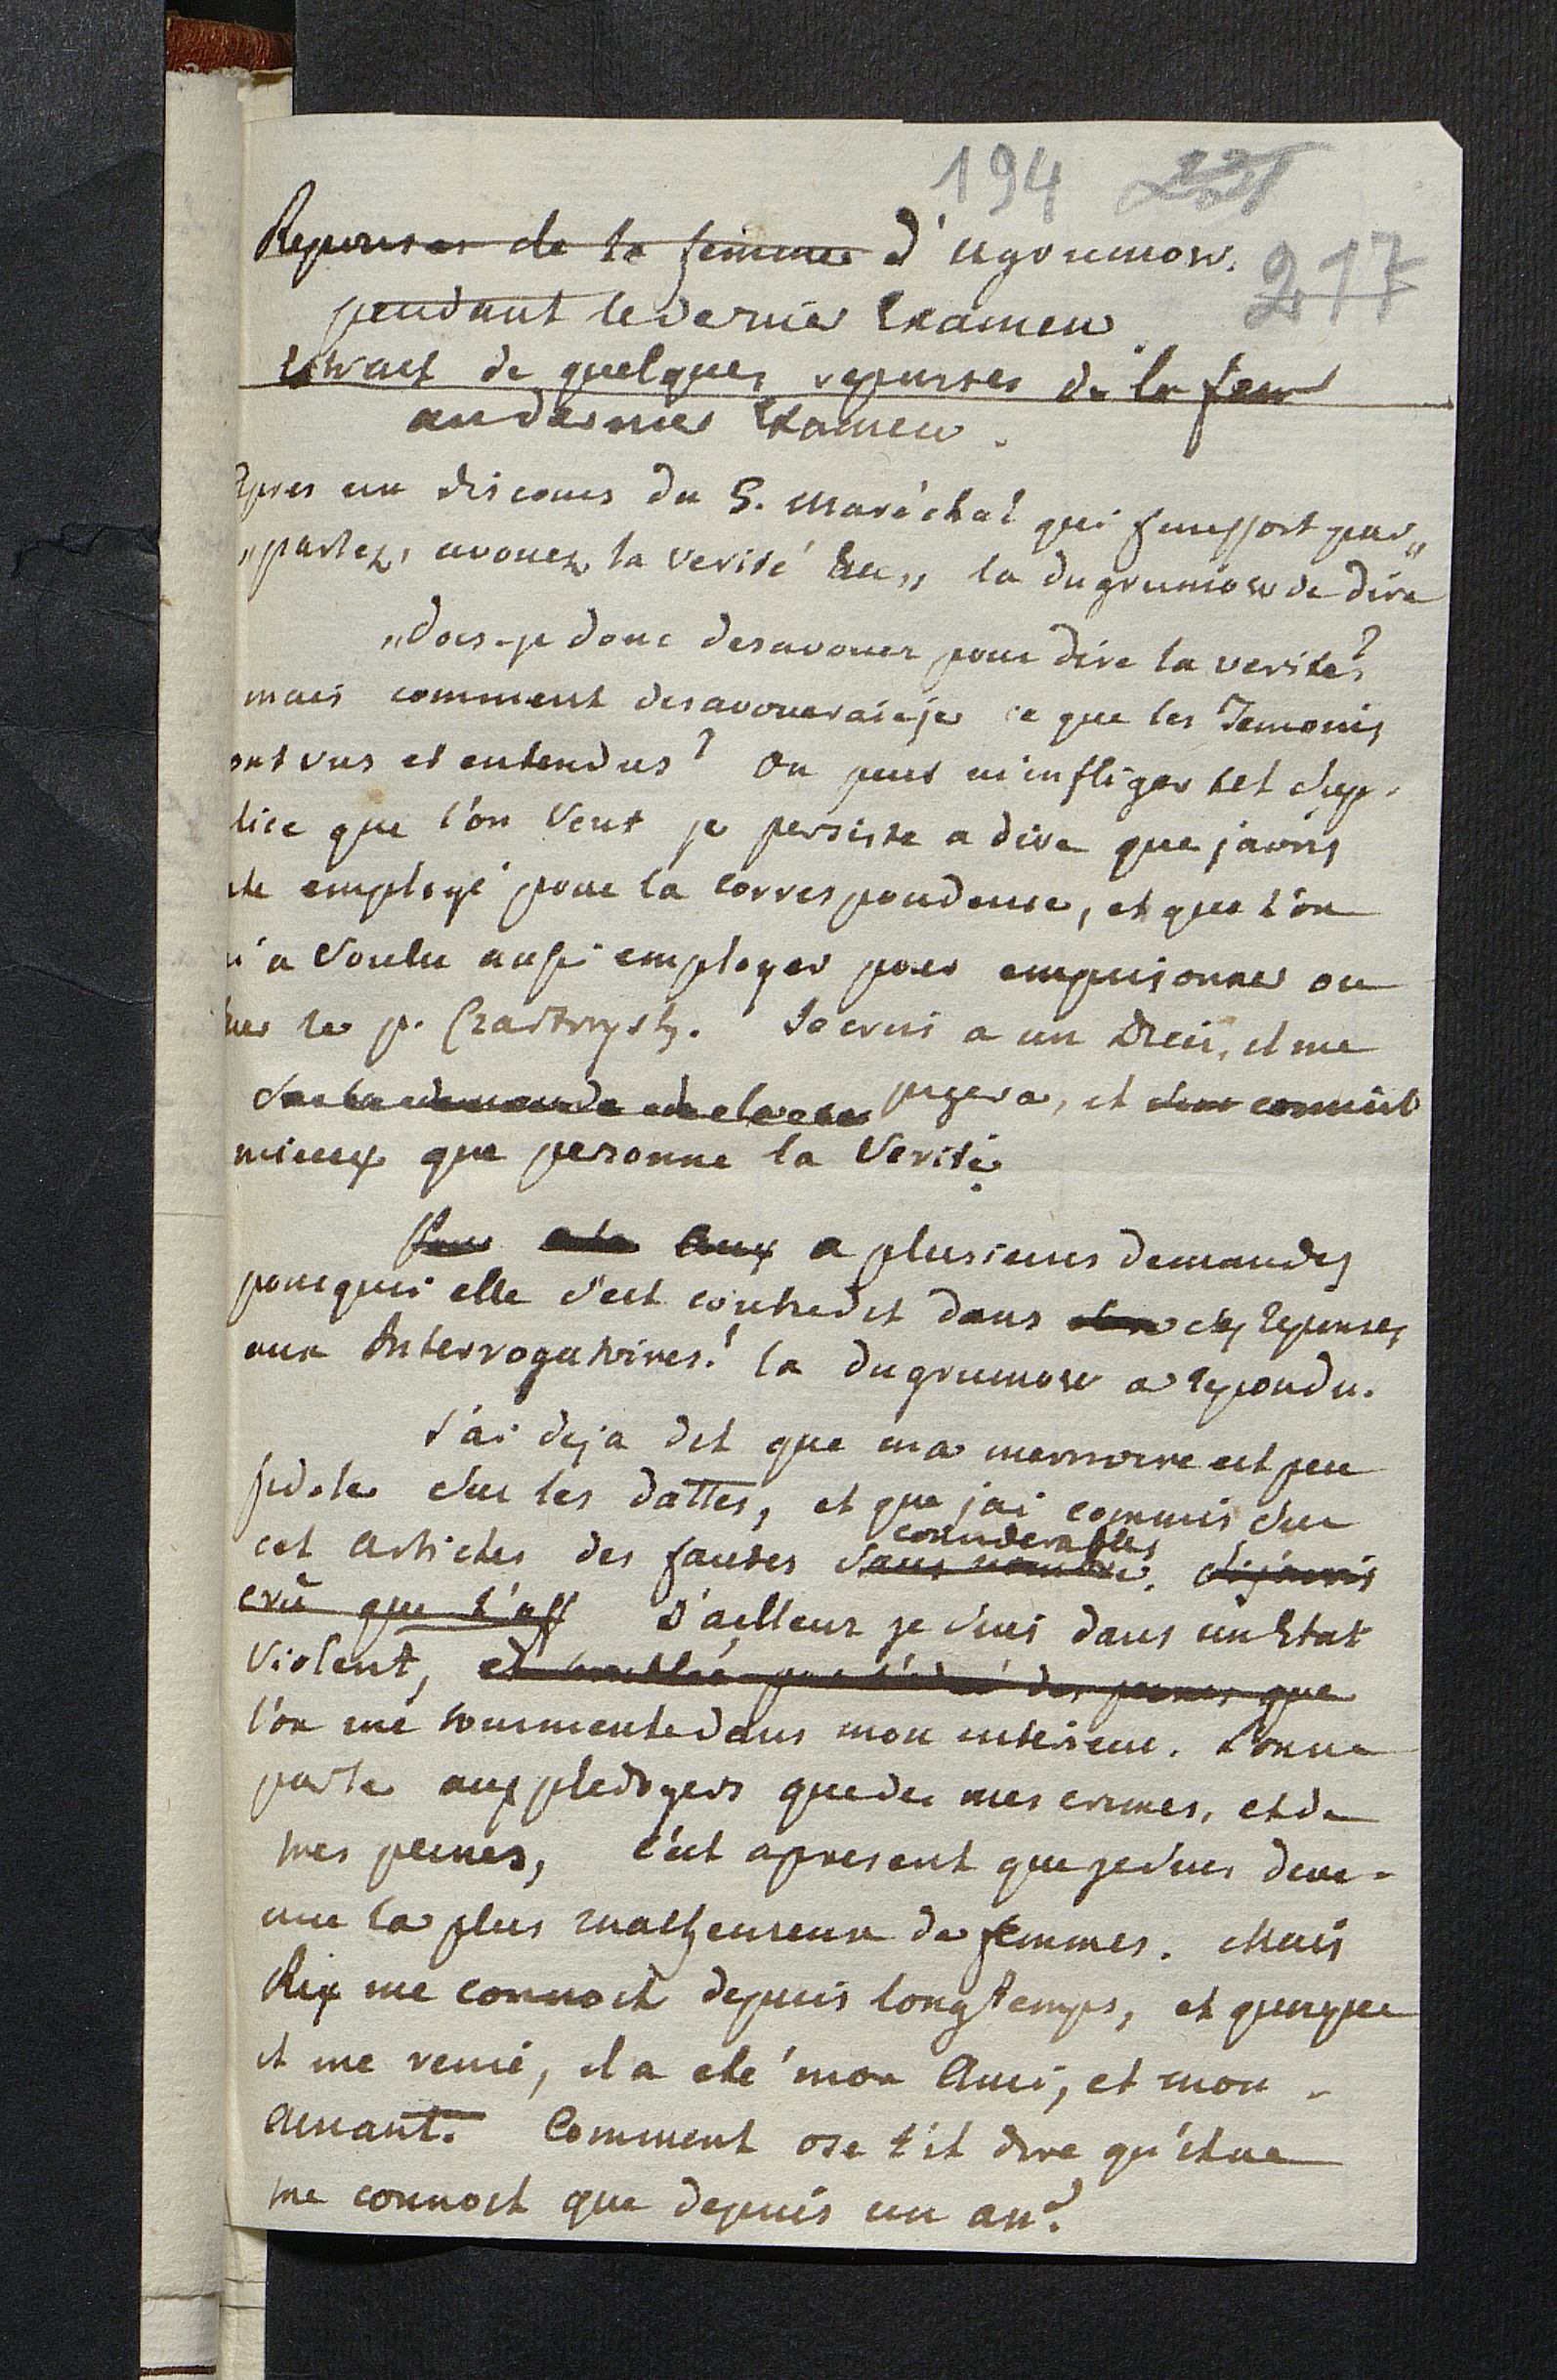 194
217
Reponses de la femme d'Ugrumow.
pendant le dernier Examen
Extrait de quelques reponses de la fem
au dernier Examen.
Apres un discours du G. Maréchal qui finissoit par„
„parlez, avouez la verité &c„ la dugrumow de dire
„dois-je donc desavouer pour dire la verité?
mais comment desavoueraije ce que les Temoins
ont vus et entendus? On peut m'infliger tel sup-
lice que l'on veut je persiste a dire que j'avois
été employé pour la correspondence, et que l'on
m'a voulu aussi employer pour empoisonner ou
tuer le p. Czartorysky. Je crois a un Dieu, il me
jugera, et connoit
mieux que personne la Verité.
aux a plusieurs demandes
pourquoi elle s'est contredit dans ses reponses
aux Interrogatoires! la dugrumow a repondu.
J'ai deja dit que ma memoire est peu
fidele sur les dattes, et que j'ai commis sur
cet articles des fautes sans nombre. considerables si j'avois
crû que l'aff D'ailleur je suis dans un Etat
violent, et des peines que
l'on me tourmente dans mon interieur. L'on ne
parle aux pledoyers que de mes crimes, et de
mes peines, c'est apresent que je suis deve-
nue la plus malheureuse de femmes. Mais
Rix me connoit depuis longtemps, et quoique
il me renie, il a eté mon Ami, et mon
Amant. Comment ose t'il dire qu'il ne
me connoit que depuis un an?